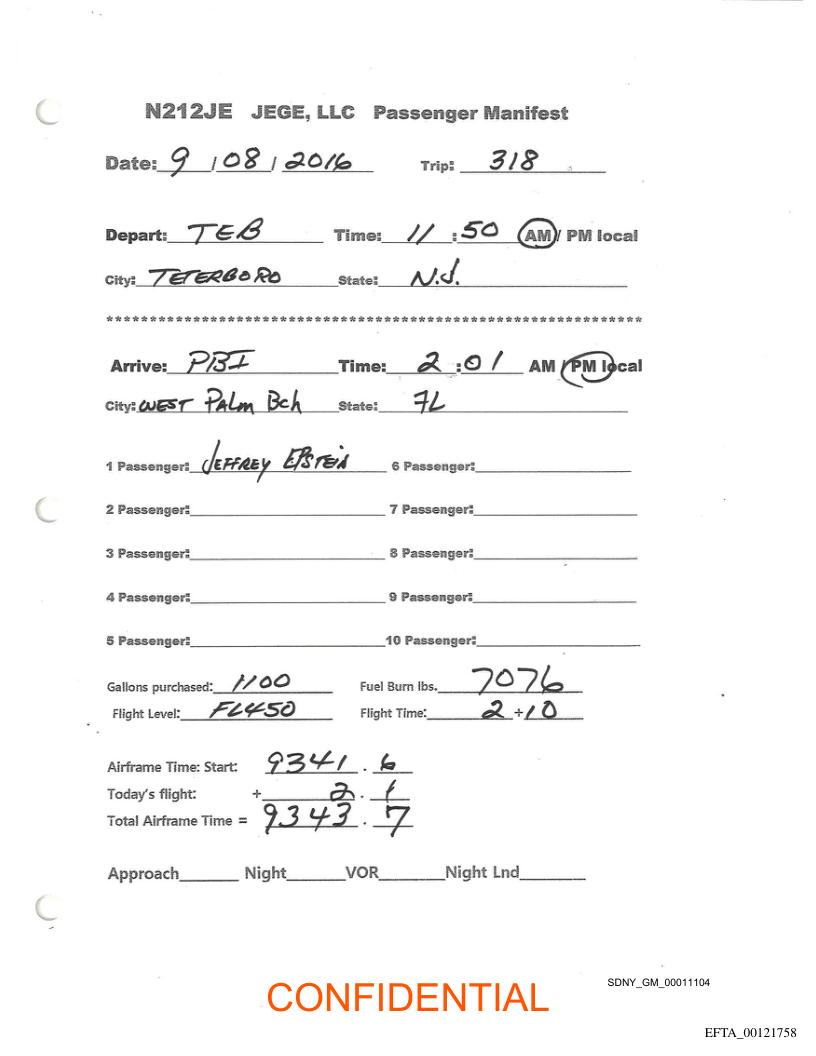 N212JE JEGE, LLC Passenger Manifest
Date: 9 / 08 / 2016 Trip: 318
Depart: TEB Time: 11 : 50 AM / PM local
City: TETERBORO State: N.J.
************************************************************
Arrive: PBI Time: 2 : 01 AM / PM local
City: WEST PALM Bch State: FL
1 Passenger: JEFFREY EPSTEIN 6 Passenger:
2 Passenger: 7 Passenger:
3 Passenger: 8 Passenger:
4 Passenger: 9 Passenger:
5 Passenger: 10 Passenger:
Gallons purchased: 1100 Fuel Burn lbs. 7076
Flight Level: FL450 Flight Time: 2 + 10
Airframe Time: Start: 9341 . 6
Today's flight: + 2 . 1
Total Airframe Time = 9343 . 7
Approach Night VOR Night Lnd
SDNY_GM_00011104
CONFIDENTIAL
EFTA_00121758